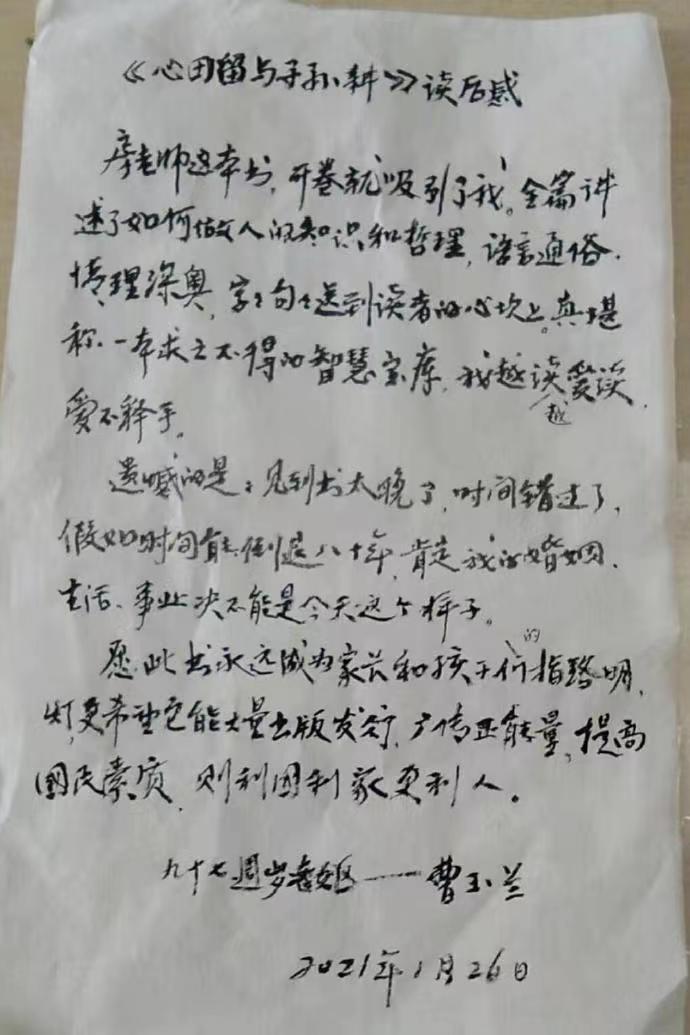 《心田留与子孙耕》读后感
房老师这本书，开卷就吸引了我。全篇讲
述了如何做人的知识和哲理，语言通俗.
情理深奥，字々句々送到读者的心坎上。真堪
称一本求之不得的智慧宝库，我越读越爱读，
爱不释手。
遗憾的是：见到书太晚了，时间错过了，
假如时间能倒退八十年，肯定我的婚姻.
生活、事业决不能是今天这个样子。
愿此书永远成为家长和孩子们的指路明
灯，更希望它能大量出版发行，广传正能量，提高
国民素质，则利国利家更利人。
九十七週岁老妪——曹玉兰
2021年1月26日